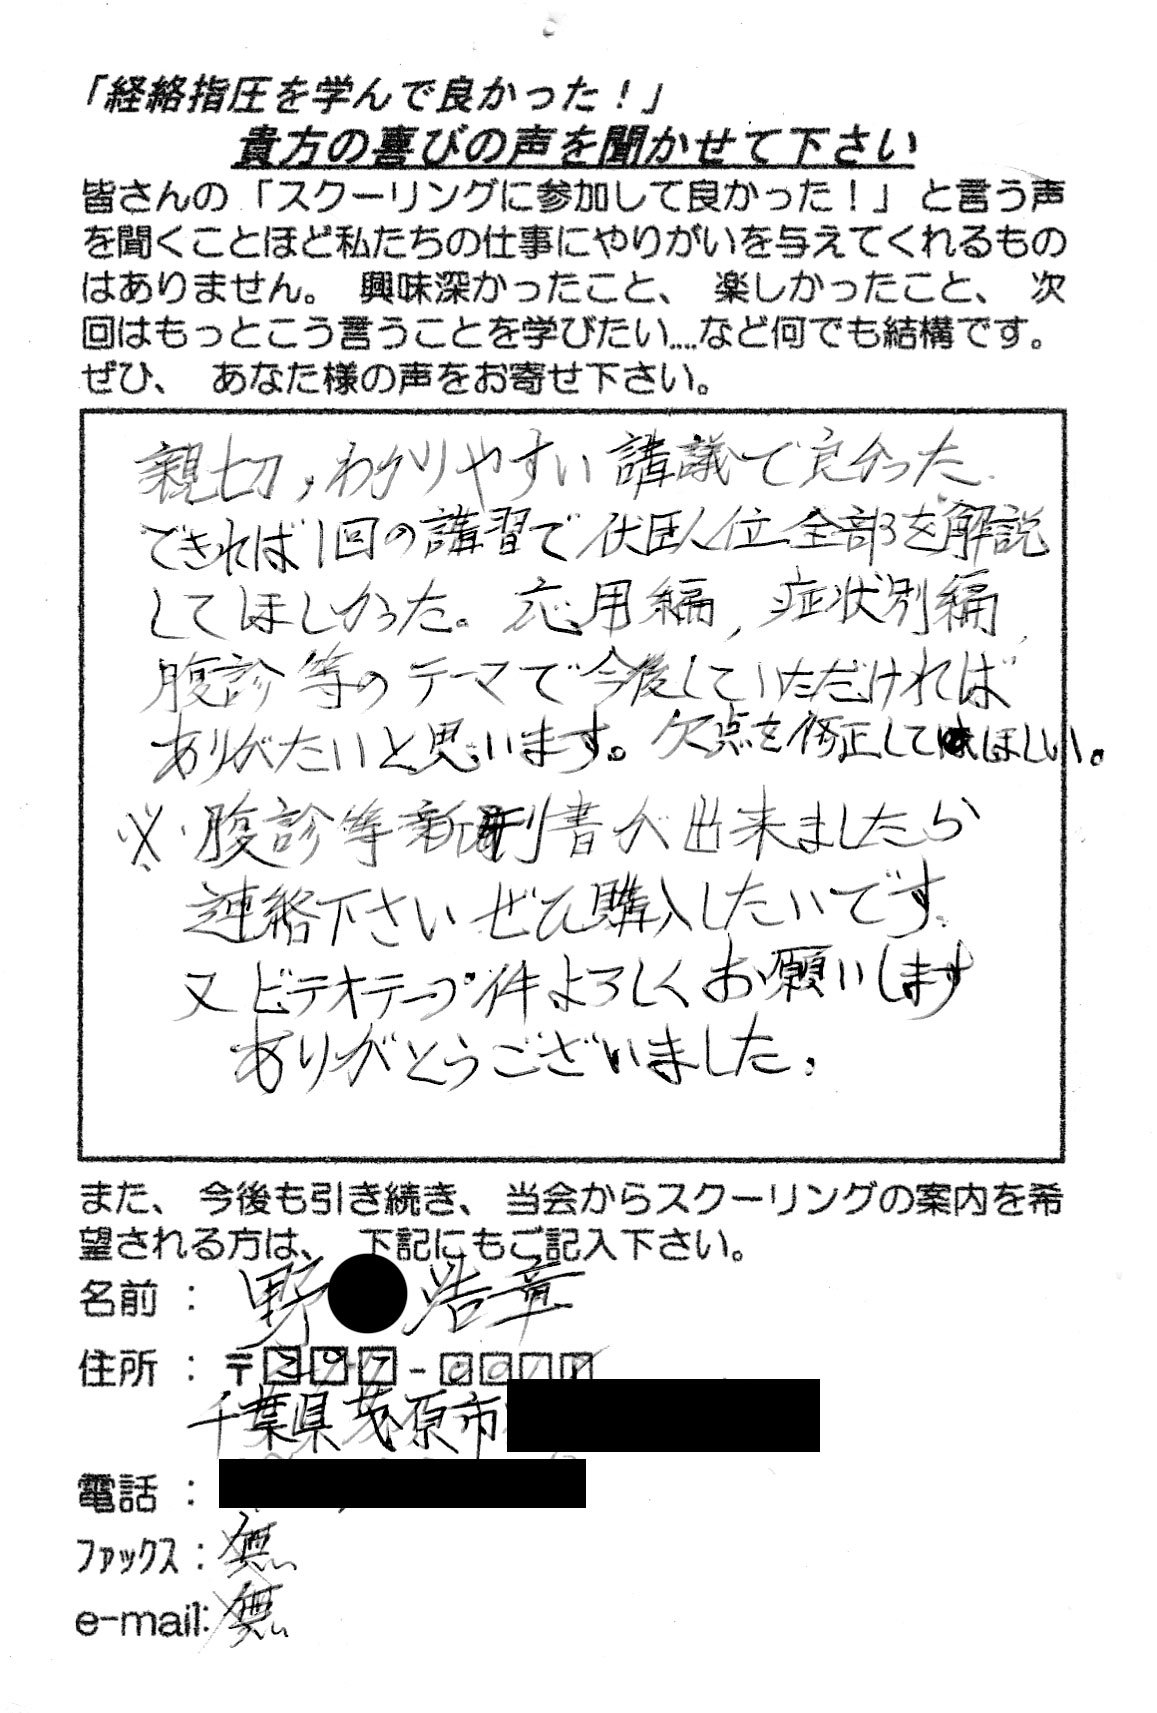 「経絡指圧を学んで良かった！」
貴方の喜びの声を聞かせて下さい
皆さんの「スクーリングに参加して良かった！」と言う声
を聞くことほど私たちの仕事にやりがいを与えてくれるもの
はありません。 興味深かったこと、 楽しかったこと、 次
回はもっとこう言うことを学びたい....など何でも結構です。
ぜひ、 あなた様の声をお寄せ下さい。
親切，わかりやすい講議で良かった
できれば1回の講習で伏臥位全部を解説
してほしかった。応用編，症状別編，
腹診等のテーマで今後していただければ
ありがたいと思います。欠点を修正してほしい。
※．腹診等新刊書が出来ましたら
連絡下さいぜひ購入したいです．
又ビデオテープ件よろしくお願いします
ありがとうございました．
また、 今後も引き続き、 当会からスクーリングの案内を希
望される方は、 下記にもご記入下さい。
名前 ： 野 浩章
住所 ： 〒297-
千葉県茂原市
電話 ：
ﾌｧｯｸｽ： 無い
e-mail: 無い